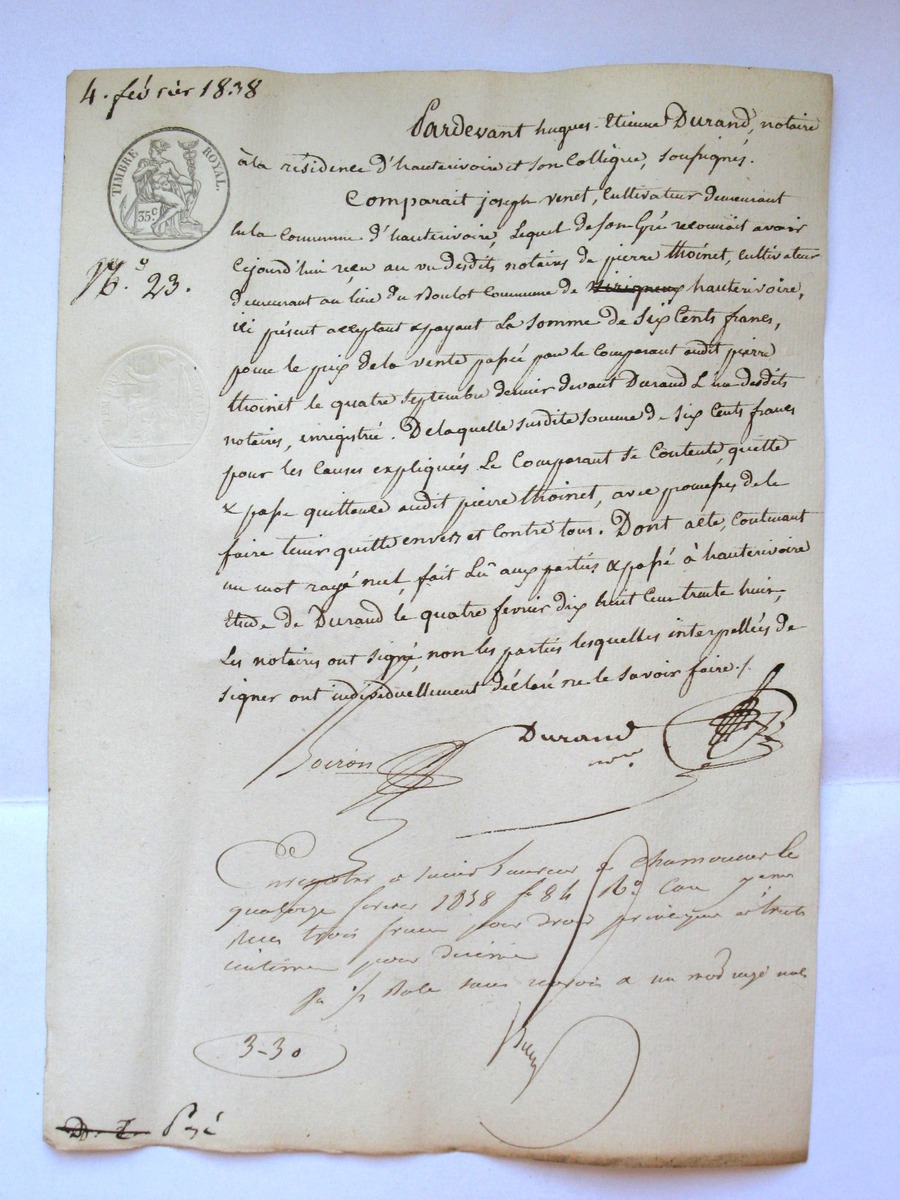 4. février 1838
TIMBRE ROYAL.
35 c
N.° 23.
Pardevant hugues-Etienne Durand, notaire
à la résidence d'hauterivoire et son Collègue, soussignés.
Comparait joseph venet, Cultivateur demeurant
en la Commune d'hauterivoire, Lequel de son Gré reconnait avoir
Cejourd'hui reçu au vu desdits notaires de pierre thoinet, Cultivateur
demeurant au lieu du Boulot Commune de hauterivoire,
ici présent acceptant & payant La somme de Six Cents francs,
pour le prix de la vente passée par le Comparant audit pierre
thoinet le quatre Septembre dernier devant Durand L'un desdits
notaires, enregistré. De laquelle susdite Somme de six Cents francs
pour les Causes expliquées Le Comparant se Contente, quitte
& passe quittance audit pierre thoinet, avec promesses de le
faire tenir quitte envers et Contre tous. Dont acte, Contenant
un mot rayé nul, fait Lu aux parties & passé à hauterivoire
Etude de Durand le quatre fevrier dix huit Cent trente huit,
Les notaires ont signé, non les parties lesquelles interpellées de
signer ont individuellement déclaré ne le savoir faire ./.
Durand
Boiron
nore.
Enregistré à Saint Laurent de Chamousset le
quatorze fevrier 1838 f° 84 R°
trois francs pour droit principal et trente
centimes pour dixième
sans renvois a un mot rayé nul
3-30
Payé